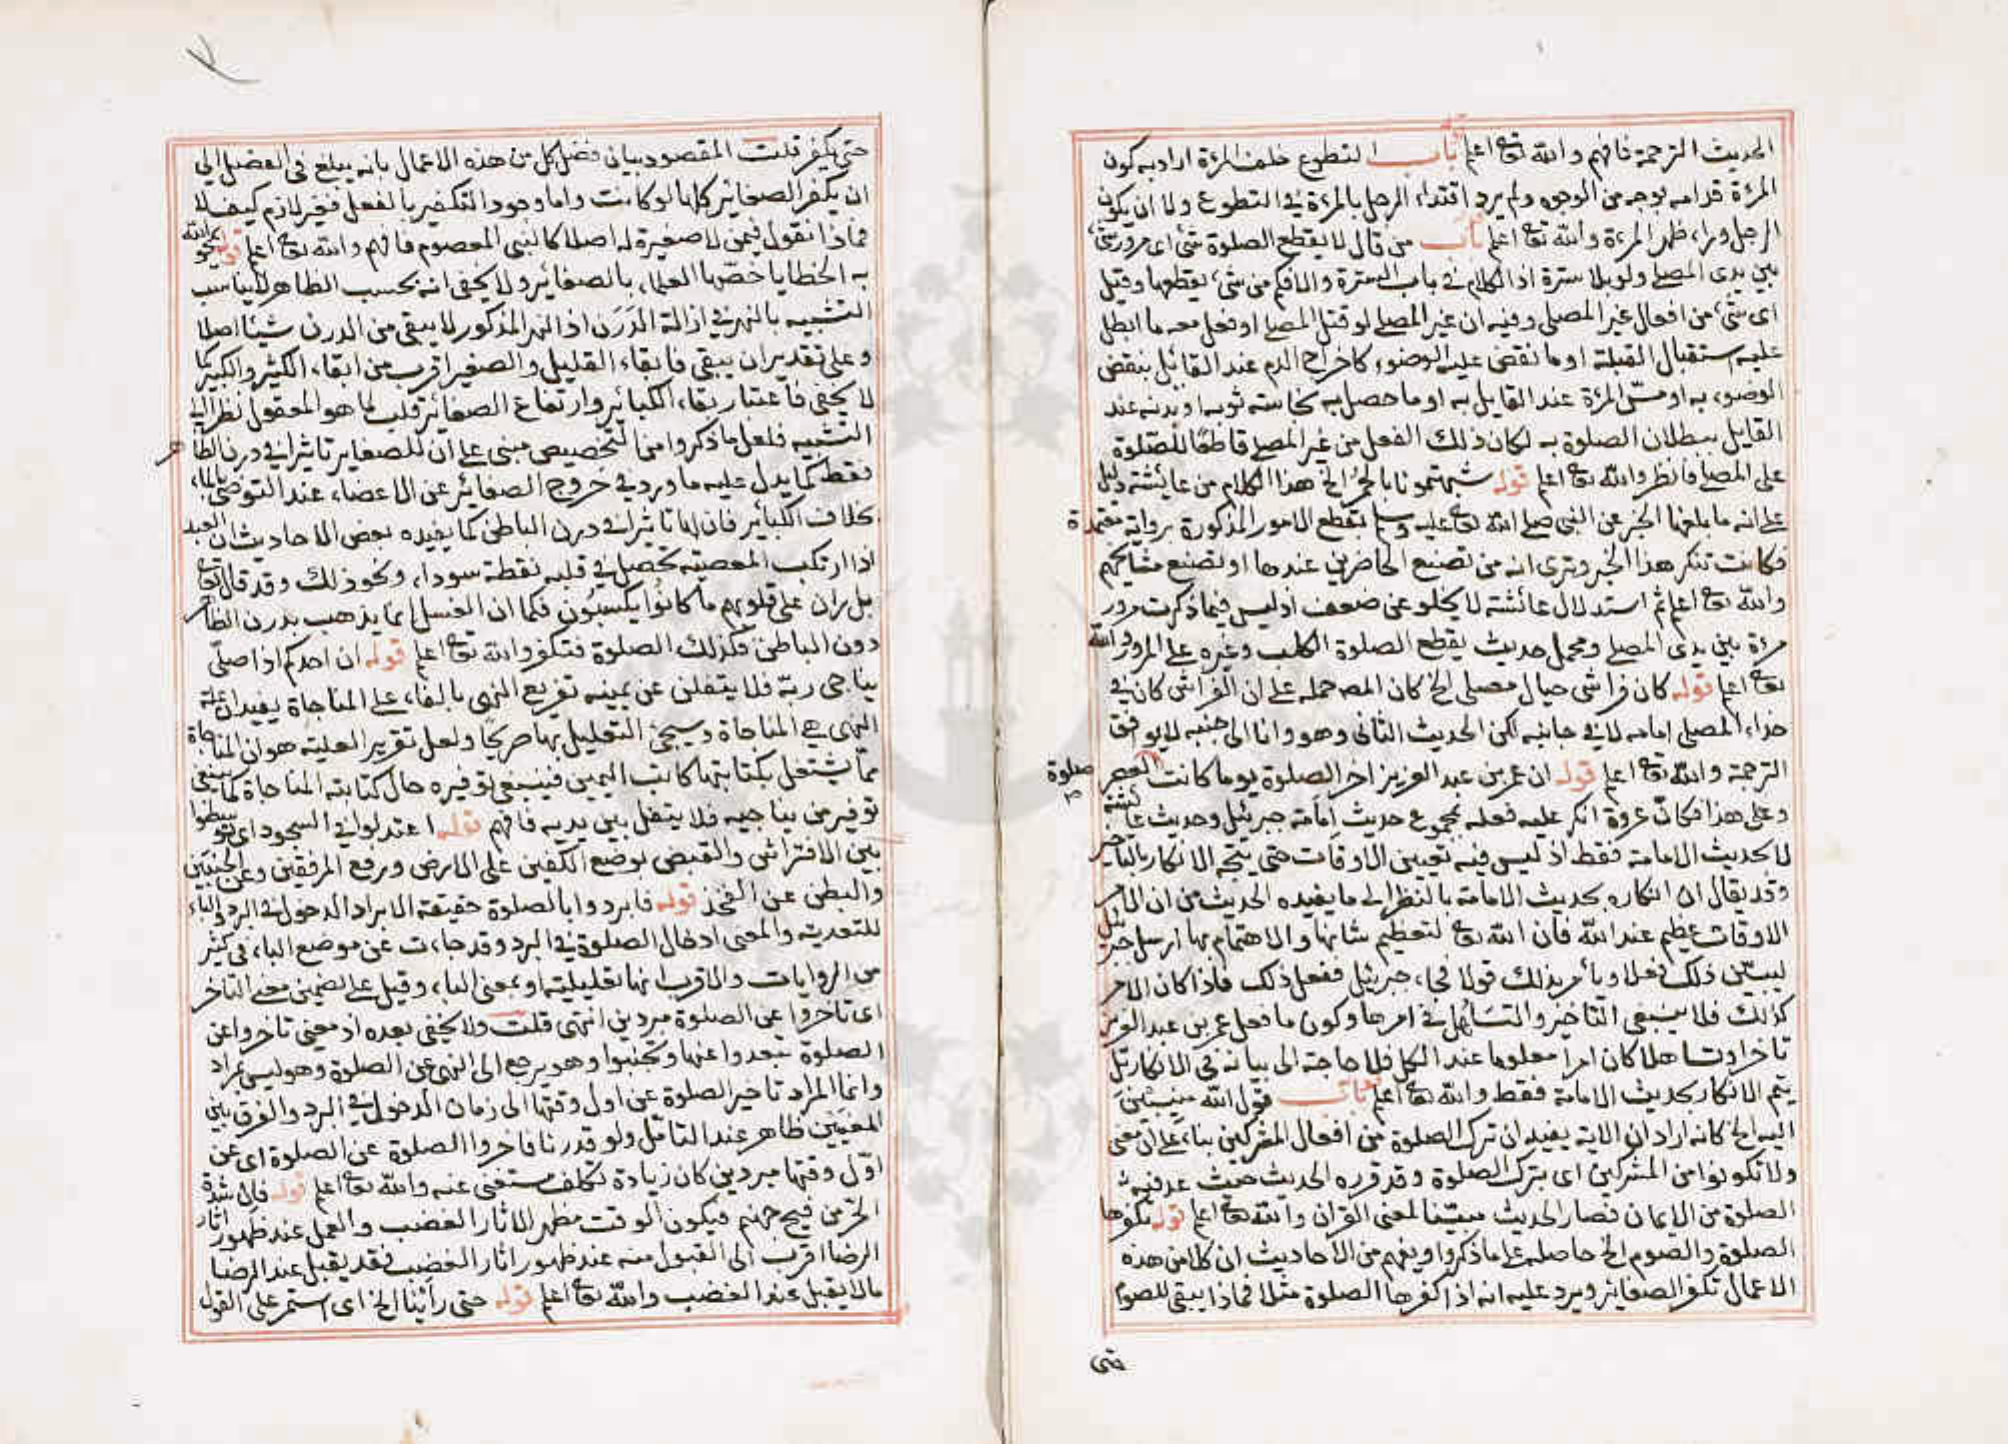 الحديث الترجمة فافهم والله تعالى اعلم باب التطوع خلف المرءة اراد به كون
المرءة قدامه بوجه من الوجوه ولم يرد اقتداء الرجل بالمرءة في التطوع ولا ان يكون
الرجل وراء ظهر المرءة والله تعا اعلم باب من قال لا يقطع الصلوة شئ اى مرور شئ
بين يدى المصلى ولو بلا سترة اذ الكلام في باب السترة والا فكم من شئ يقطعها وقيل
اى شئ من افعال غير المصلى وفيه ان غير المصلى لو قتل المصلى او فعل معه ما ابطل
عليه استقبال القبلة او ما نقض عليه الوضوء كاخراج الدم عند القائل بنقض
الوضوء به او مسّ المرءة عند القايل به او ما حصل به نجاسة ثوبه او بدنه عند
القايل ببطلان الصلوة به لكان ذلك الفعل من غير المصلى قاطعًا للصلوة
على المصلى فانظر والله تعا اعلم قوله شبهتمونا بالحمر الخ هذا الكلام من عائشة دليل
على انه ما بلغها الخبر عن النبى صلى الله تعا عليه وسلم بقطع الامور المذكورة برواية معتمدة
فكانت تنكر هذا الخبر وترى انه من تصنيع الحاضرين عندها او تصنيع مشايخهم
والله تعا اعلم ثم استدلال عائشة لا يخلو عن ضعف اذ ليس فيما ذكرت مرور
مرءة بين يدى المصلى ومحمل حديث يقطع الصلوة الكلب وغيره على المرور والله
تعا اعلم قوله كان فراشى حيال مصلى الخ كان المصـ حمله على ان الفراش كان في
حذاء المصلى امامه لا في جانبه لكن الحديث الثانى وهو وانا الى جنبه لا يوافق
الترجمة والله تعا اعلم قوله ان عمر بن عبد العزيز اخر الصلوة يوما كانت صلوة العصر
وعلى هذا فكانّ عروة انكر عليه فعله بمجموع حديث اِمَامة جبرئيل وحديث عائشة
لا بحديث الامامة فقط اذ ليس فيه تعيين الاوقات حتى يتجه الانكار بالتاخير
وقد يقال ان انكاره بحديث الامامة بالنظر الى ما يفيده الحديث من ان الامر
الاوقات عظيم عند الله فان الله تعا لتعظيم شانها والاهتمام بها ارسل جبرئيل
ليبيّن ذلك فعلا ويأمر بذلك قولا فجاء جبرئيل ففعل ذلك فاذا كان الامر
كذلك فلا ينبغى التاخير والتسَاهُل في امرها وكون ما فعل عمر بن عبد العزيز
تاخرا وتساهلا كان امرا معلوما عند الكل فلا حاجة الى بيانه في الانكار بل
يتم الانكار بحديث الامامة فقط والله تعا اعلم باب قول الله منيبين
اليه الخ كانه اراد ان الاية يفيد ان ترك الصلوة من افعال المشركين بناء على ان معنى
ولا تكونوا من المشركين اى بترك الصلوة وقد قرره الحديث حيث عد فيه
الصلوة من الايمان فصار الحديث مبيّنا لمعنى القران والله تعا اعلم قوله تكفرها
الصلوة والصوم الخ حاصله على ما ذكروا ويفهم من الاحاديث ان كلا من هذه
الاعمال تكفر الصغاير ويرد عليه انه اذا كفرها الصلوة مثلا فماذا يبقى للصوم
حتى
حتى يكفر قلت المقصود بيان فضل كل من هذه الاعمال بانه يبلغ في الفضل الى
ان يكفر الصغاير كلها لو كانت واما وجود التكفير بالفعل فغير لازم كيف لا
فماذا نقول فيمن لا صغيرة له اصلا كالنبى المعصوم فافهم والله تعا اعلم قوله يمحو الله
به الخطايا خصّها العلماء بالصغائر ولا يخفى انه بحسب الظاهر لا يناسب
التشبيه بالنهر في ازالة الدَرَن اذ النهر المذكور لا يبقى من الدرن شيئا اصلا
وعلى تقدير ان يبقى فابقاء القليل والصغير اقرب من ابقاء الكثير والكبير كما
لا يخفى فاعتبار بقاء الكبائر وارتفاع الصغائر قلب لما هو المعقول نظرا الى
التشبيه فلعل ما ذكروا من التخصيص مبنى على ان للصغاير تاثيرا في درن الظاهر
فقط كما يدل عليه ما ورد في خروج الصغائر عن الاعضاء عند التوضى بالماء
بخلاف الكبائر فان لها تاثيرا في درن الباطن كما يفيده بعض الاحاديث ان العبد
اذا ارتكب المعصية تحصل في قلبه نقطة سوداء ونحو ذلك وقد قال تعا
بل ران على قلوبهم ما كانوا يكسبُون فكما ان الغسل انما يذهب بدرن الظاهر
دون الباطن فكذلك الصلوة فتفكر والله تعا اعلم قوله ان احدكم اذا صلّى
يناجى ربّه فلا يتفلن عن يمينه تفريع النهى بالفاء على المناجاة يفيد ان علة
النهى هي المناجاة وسيجئ التعليل بها صريحًا ولعل تقرير العلية هو ان المناجاة
ممّا يشتغل بكتابتها كاتب اليمين فينبغى توقيره حال كتابته المناجاة كما ينبغى
توقير من يناجيه فلا يتفل بين يديه فافهم قوله اعتدلوا في السجود اى توسطوا
بين الافتراش والقبض بوضع الكفين على الارض ورفع المرفقين وعن الجنبين
والبطن عن الفخذ قوله فابردوا بالصلوة حقيقة الابراد الدخول في البرد والباء
للتعدية والمعنى ادخال الصلوة في البرد وقد جاءت عن موضع الباء في كثير
من الروايات والاقرب انها تعليلية او بمعنى الباء وقيل على تضمين معنى التاخر
اى تاخروا عن الصلوة مبردين انتهى قلت ولا يخفى بعده اذ معنى تاخروا عن
الصلوة تبعدوا عنها وتجنبوا وهو يرجع الى النهى عن الصلوة وهو ليس بمراد
وانما المراد تاخير الصلوة عن اول وقتها الى زمان الدخول في البرد والفرق بين
المعنيَين ظاهر عند التاَمّل ولو قدرنا فاخروا الصلوة عن الصلوة اى عن
اوّل وقتها مبردين كان زيادة تكلف مستغنى عنه والله تعا اعلم قوله فان شدة
الحرّ من فيح جهنم فيكون الوقت مظهر الاثار الغضب والعمل عند ظهور اثار
الرضا اقرب الى القبول منه عند ظهور اثار الغضب فقد يقبل عند الرضا
مالا يقبل عند الغضب والله تعا اعلم قوله حتى رأينا الخ اى استمر على القول